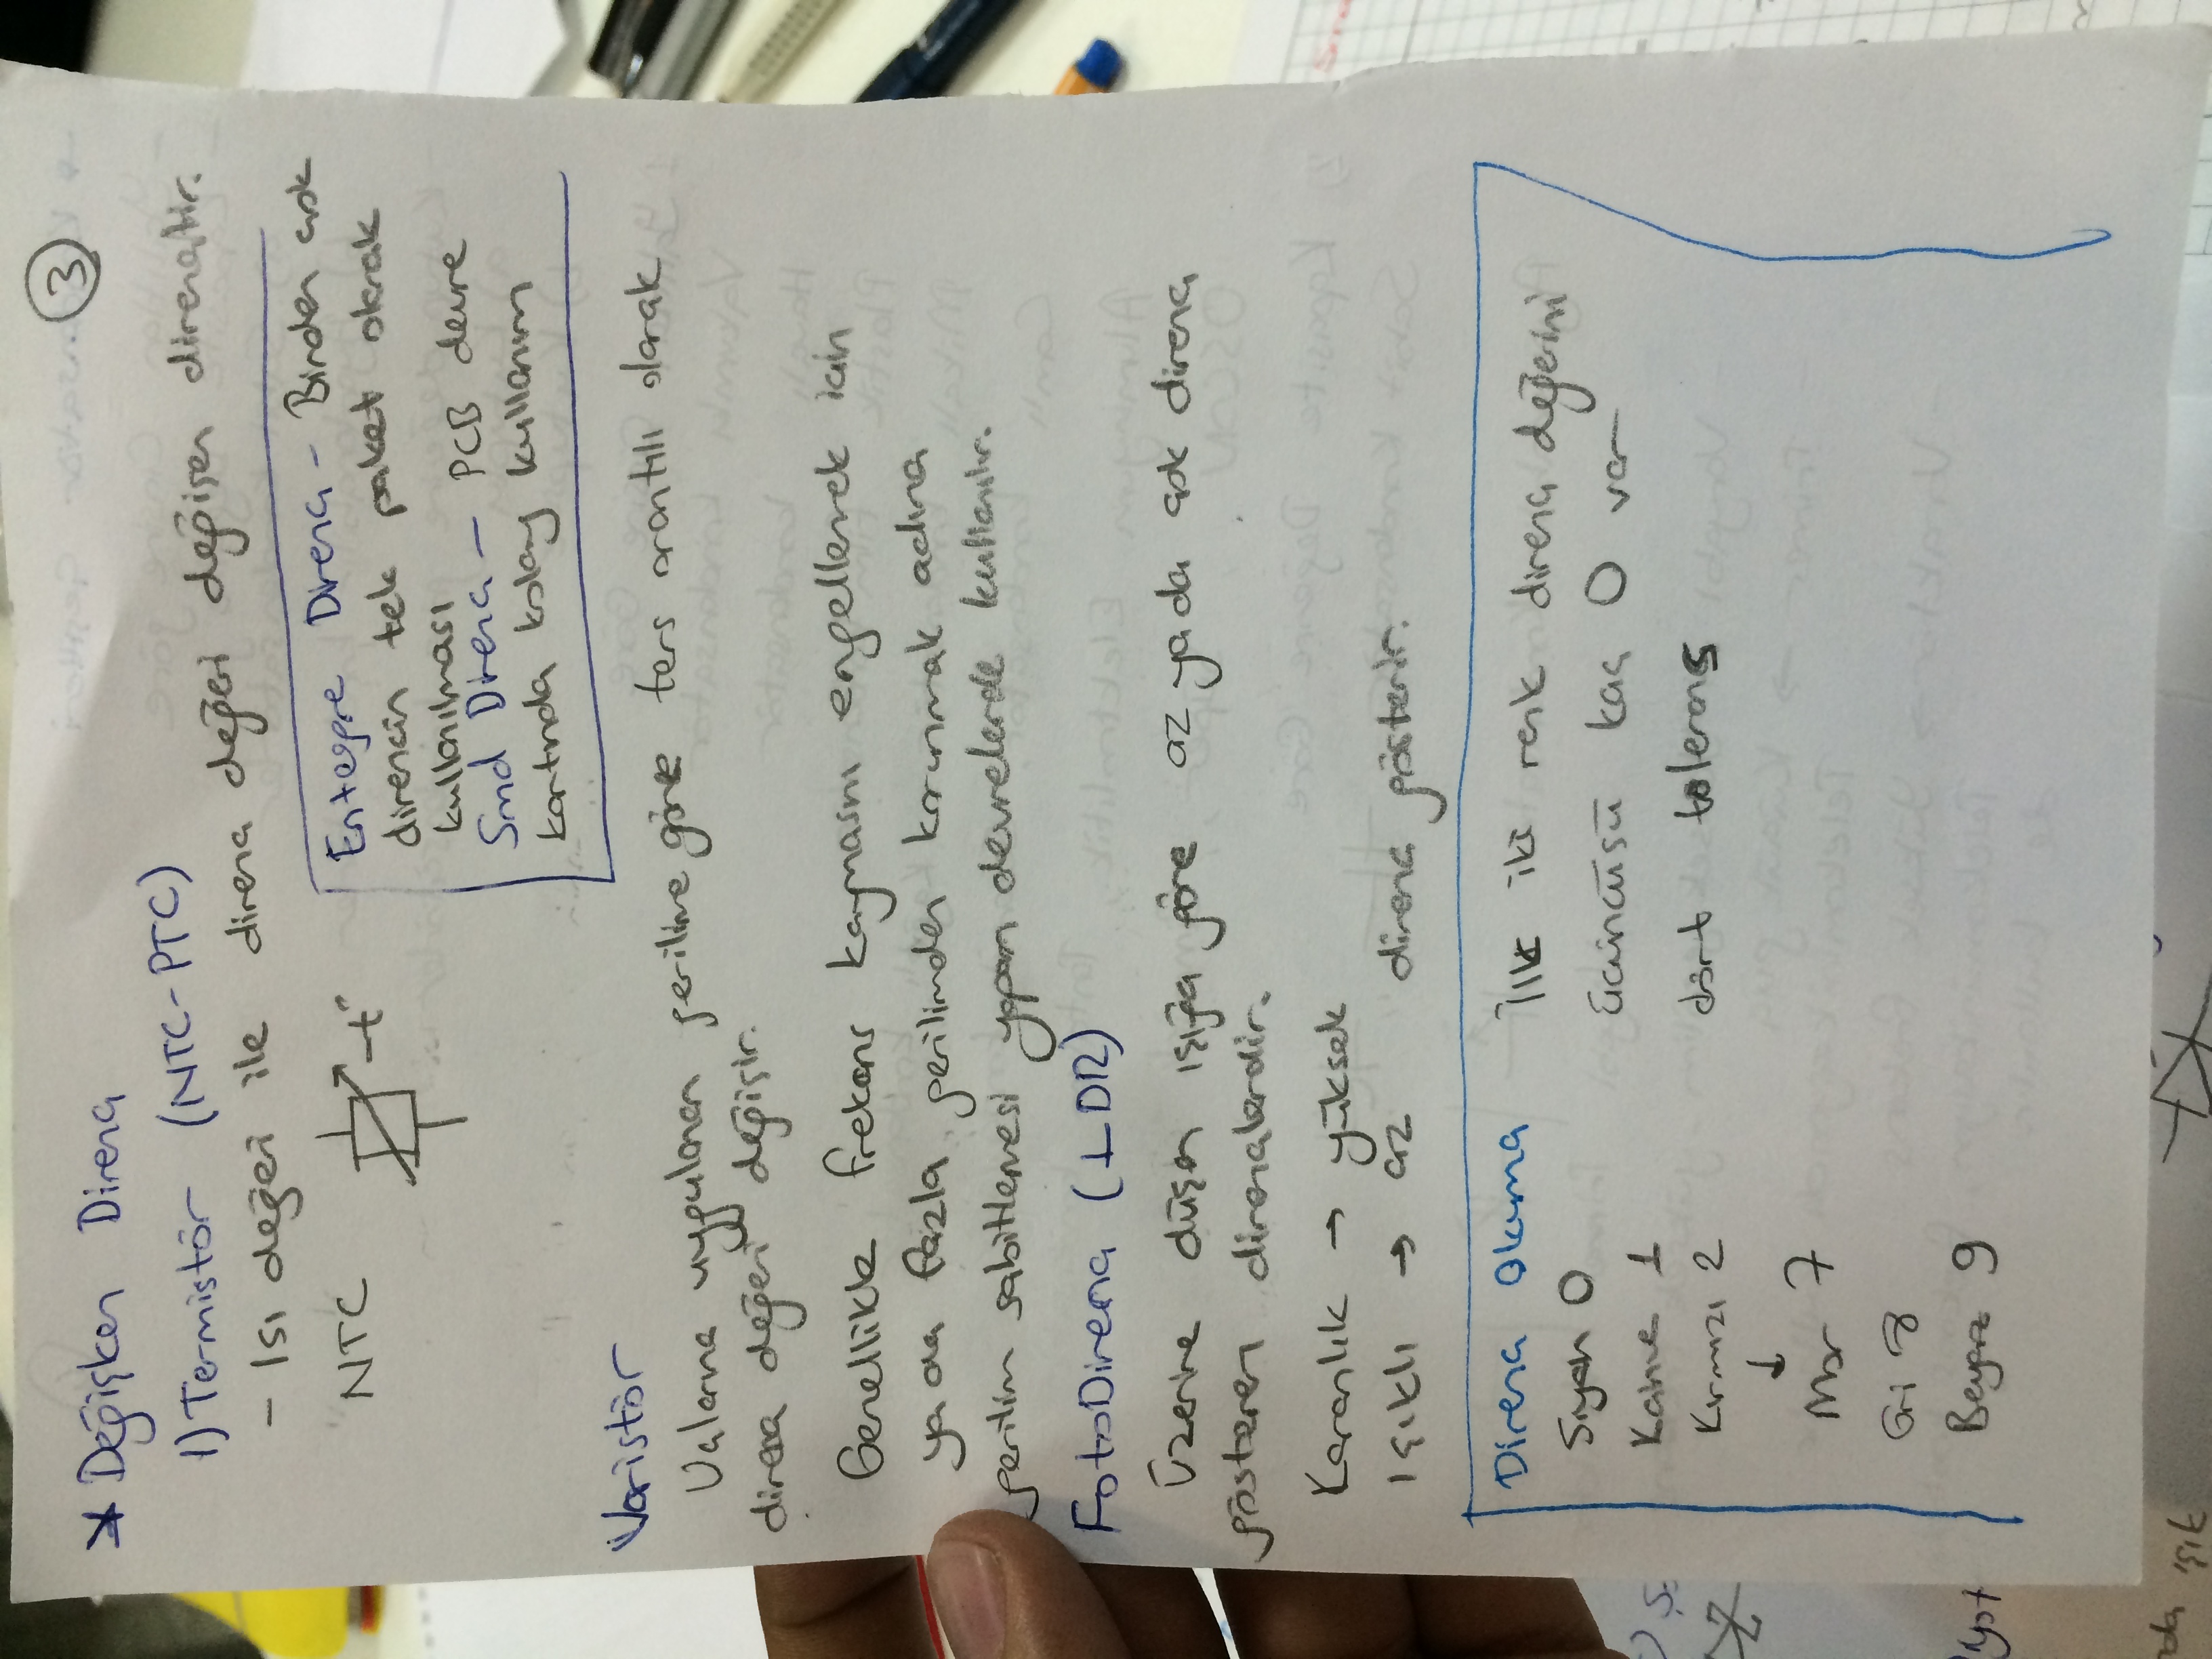 3
* Değişken Direnç
1) Termistör (NTC-PTC)
- Isı değeri ile direnç değeri değişen dirençtir.
NTC
-t°
Entegre Direnç - Birden çok
direncin tek paket olarak
kullanılması
Smd Direnç - PCB devre
kartında kolay kullanım
Varistör
Uçlarına uygulanan gerilime göre ters orantılı olarak
direnç değeri değişir.
Genellikle frekans kaymasını engellemek için
ya da fazla gerilimden korunmak adına
gerilim sabitlemesi yapan devrelerde kullanılır.
FotoDirenç (LDR)
Üzerine düşen ışığa göre az yada çok direnç
gösteren dirençlerdir.
Karanlık → yüksek
Işıklı → az direnç gösterir.
Direnç Okuma
Siyah 0
Kahve 1
Kırmızı 2
↓
Mor 7
Gri 8
Beyaz 9
İlk iki renk direnç değerini
üçüncüsü kaç 0 var
dört tolerans
ışık